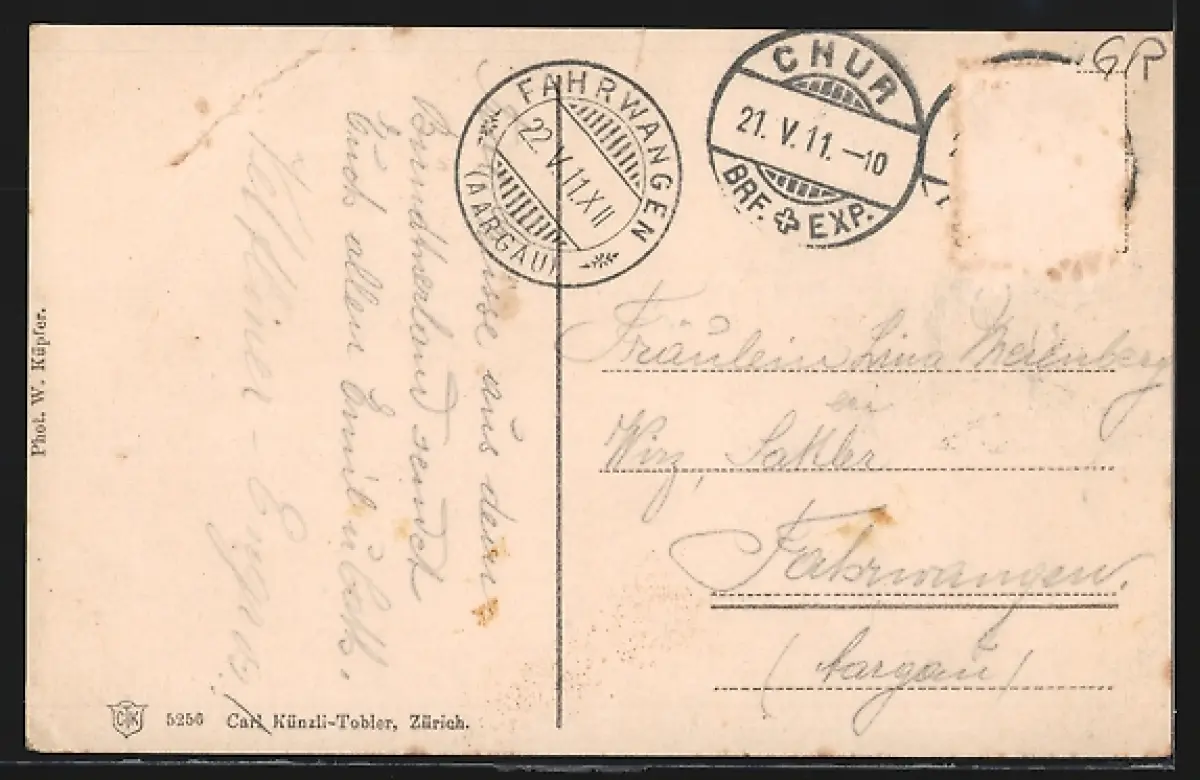 GR
CHUR
21. V. 11. –10
BRF. EXP.
FAHRWANGEN
22 V. 11. XII
(AARGAU)
aus dem
Bündnerland sendet
Euch allen Emil
Fräulein Lina Meienberg
bei
Wirz, Sattler
Fahrwangen.
(Aargau)
Phot. W. Küpfer.
5256 Carl Künzli-Tobler, Zürich.